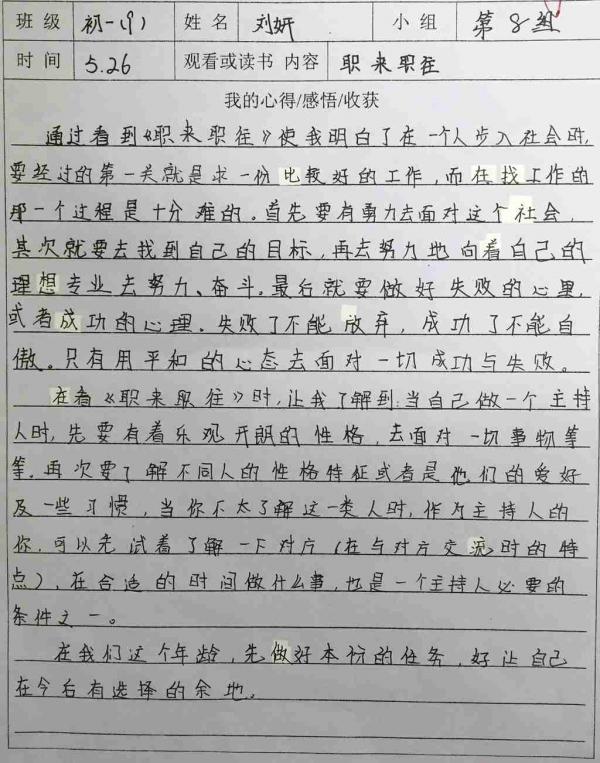 班级 初一(9) 姓名 刘妍 小组 第8组
时间 5.26 观看或读书 内容 职来职往
我的心得/感悟/收获
通过看到《职来职往》使我明白了在一个人步入社会时,
要经过的第一关就是求一份比较好的工作,而在找工作的
那一个过程是十分难的。首先要有勇力去面对这个社会,
其次就要去找到自己的目标,再去努力地向着自己的
理想专业去努力、奋斗。最后就要做好失败的心里,
或者成功的心理。失败了不能放弃,成功了不能自
傲。只有用平和的心态去面对一切成功与失败。
在看《职来职往》时,让我了解到:当自己做一个主持
人时,先要有着乐观开朗的性格,去面对一切事物等
等。再次要了解不同人的性格特征或者是他们的爱好
及一些习惯,当你不太了解这一类人时,作为主持人的
你,可以先试着了解一下对方(在与对方交流时的特
点),在合适的时间做什么事,也是一个主持人必要的
条件之一。
在我们这个年龄,先做好本份的任务,好让自己
在今后有选择的余地。